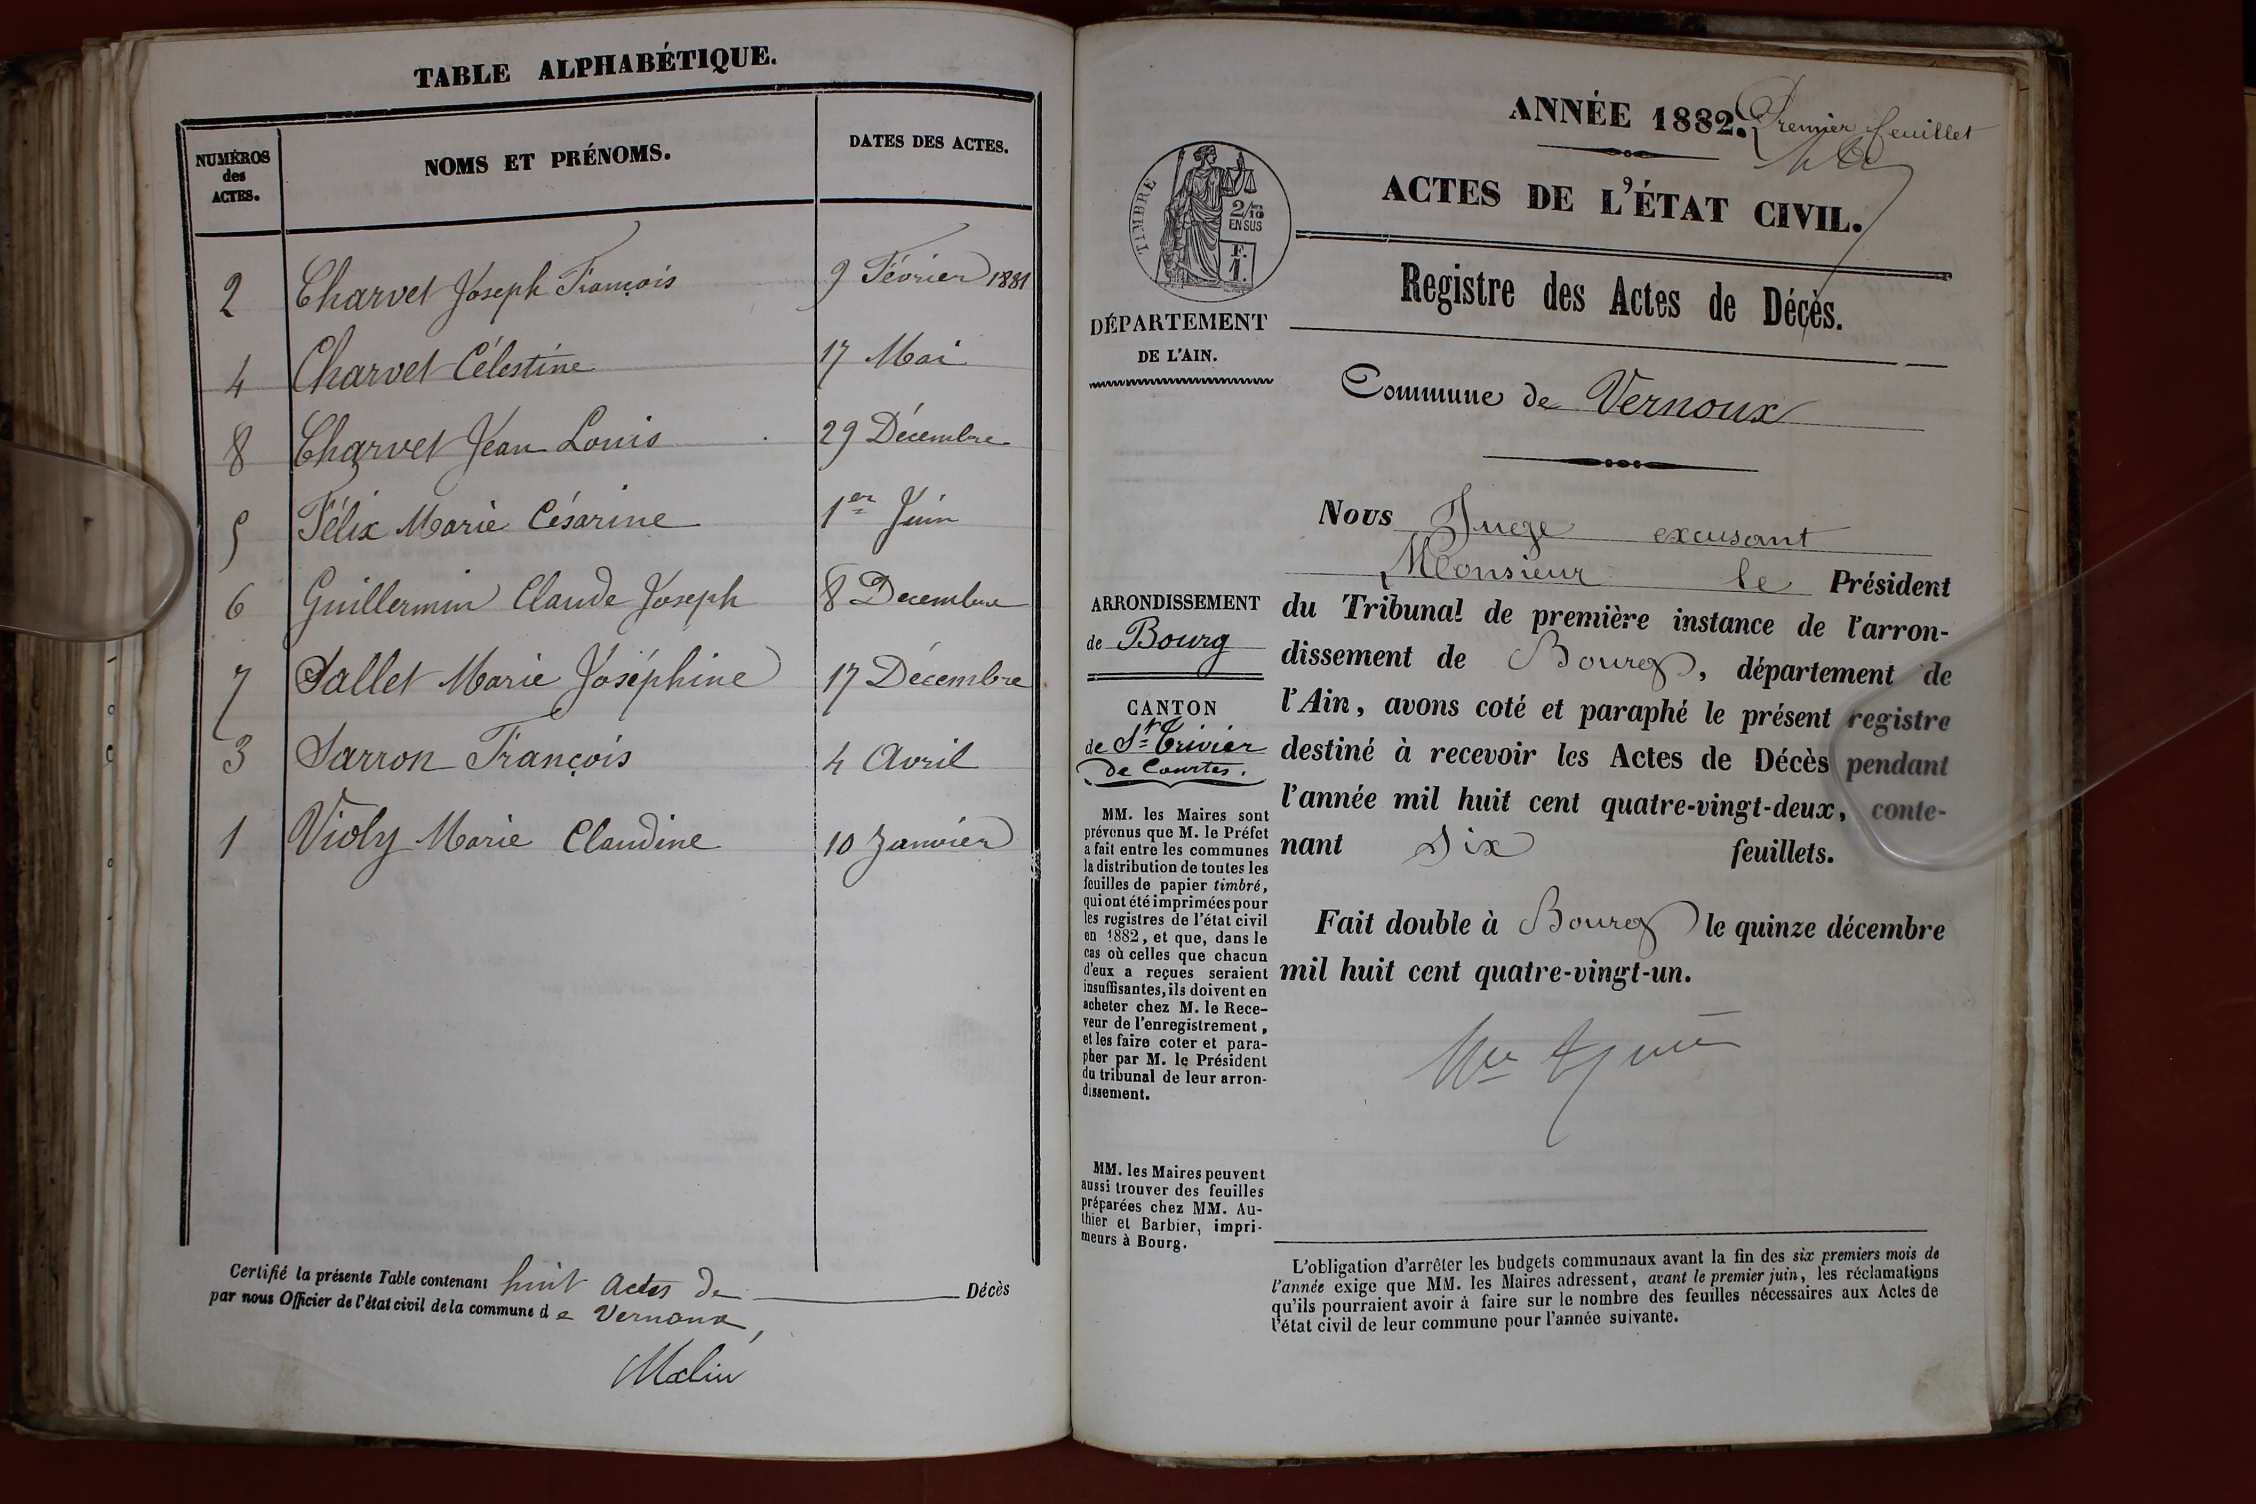 TABLE ALPHABÉTIQUE.
NUMÉROS des ACTES. NOMS ET PRÉNOMS. DATES DES ACTES.
2 Charvet Joseph François 9 Février 1881
4 Charvet Célestine 17 Mai
8 Charvet Jean Louis 29 Décembre
5 Félix Marie Césarine 1er Juin
6 Guillermin Claude Joseph 8 Decembre
7 Sallet Marie Joséphine 17 Décembre
3 Sarron François 4 Avril
1 Violy Marie Claudine 10 Janvier
Certifié la présente Table contenant huit Actes de Décès
par nous Officier de l'état civil de la commune de Vernoux,
ANNÉE 1882. Premier feuillet
ACTES DE L'ÉTAT CIVIL.
TIMBRE
2/10
EN SUS
F.
1.
Registre des Actes de Décès.
DÉPARTEMENT
DE L'AIN.
Commune de Vernoux
Nous Juge excusant
Monsieur le Président
du Tribunal de première instance de l'arron-
dissement de Bourg, département de
l'Ain, avons coté et paraphé le présent registre
destiné à recevoir les Actes de Décès pendant
l'année mil huit cent quatre-vingt-deux, conte-
nant Six feuillets.
Fait double à Bourg le quinze décembre
mil huit cent quatre-vingt-un.
ARRONDISSEMENT
de Bourg
CANTON
de St Trivier
de Courtes.
MM. les Maires sont
prévenus que M. le Préfet
a fait entre les communes
la distribution de toutes les
feuilles de papier timbré,
qui ont été imprimées pour
les registres de l'état civil
en 1882, et que, dans le
cas où celles que chacun
d'eux a reçues seraient
insuffisantes, ils doivent en
acheter chez M. le Rece-
veur de l'enregistrement,
et les faire coter et para-
pher par M. le Président
du tribunal de leur arron-
dissement.
MM. les Maires peuvent
aussi trouver des feuilles
préparées chez MM. Au-
thier et Barbier, impri-
meurs à Bourg.
L'obligation d'arrêter les budgets communaux avant la fin des six premiers mois de
l'année exige que MM. les Maires adressent, avant le premier juin, les réclamations
qu'ils pourraient avoir à faire sur le nombre des feuilles nécessaires aux Actes de
l'état civil de leur commune pour l'année suivante.